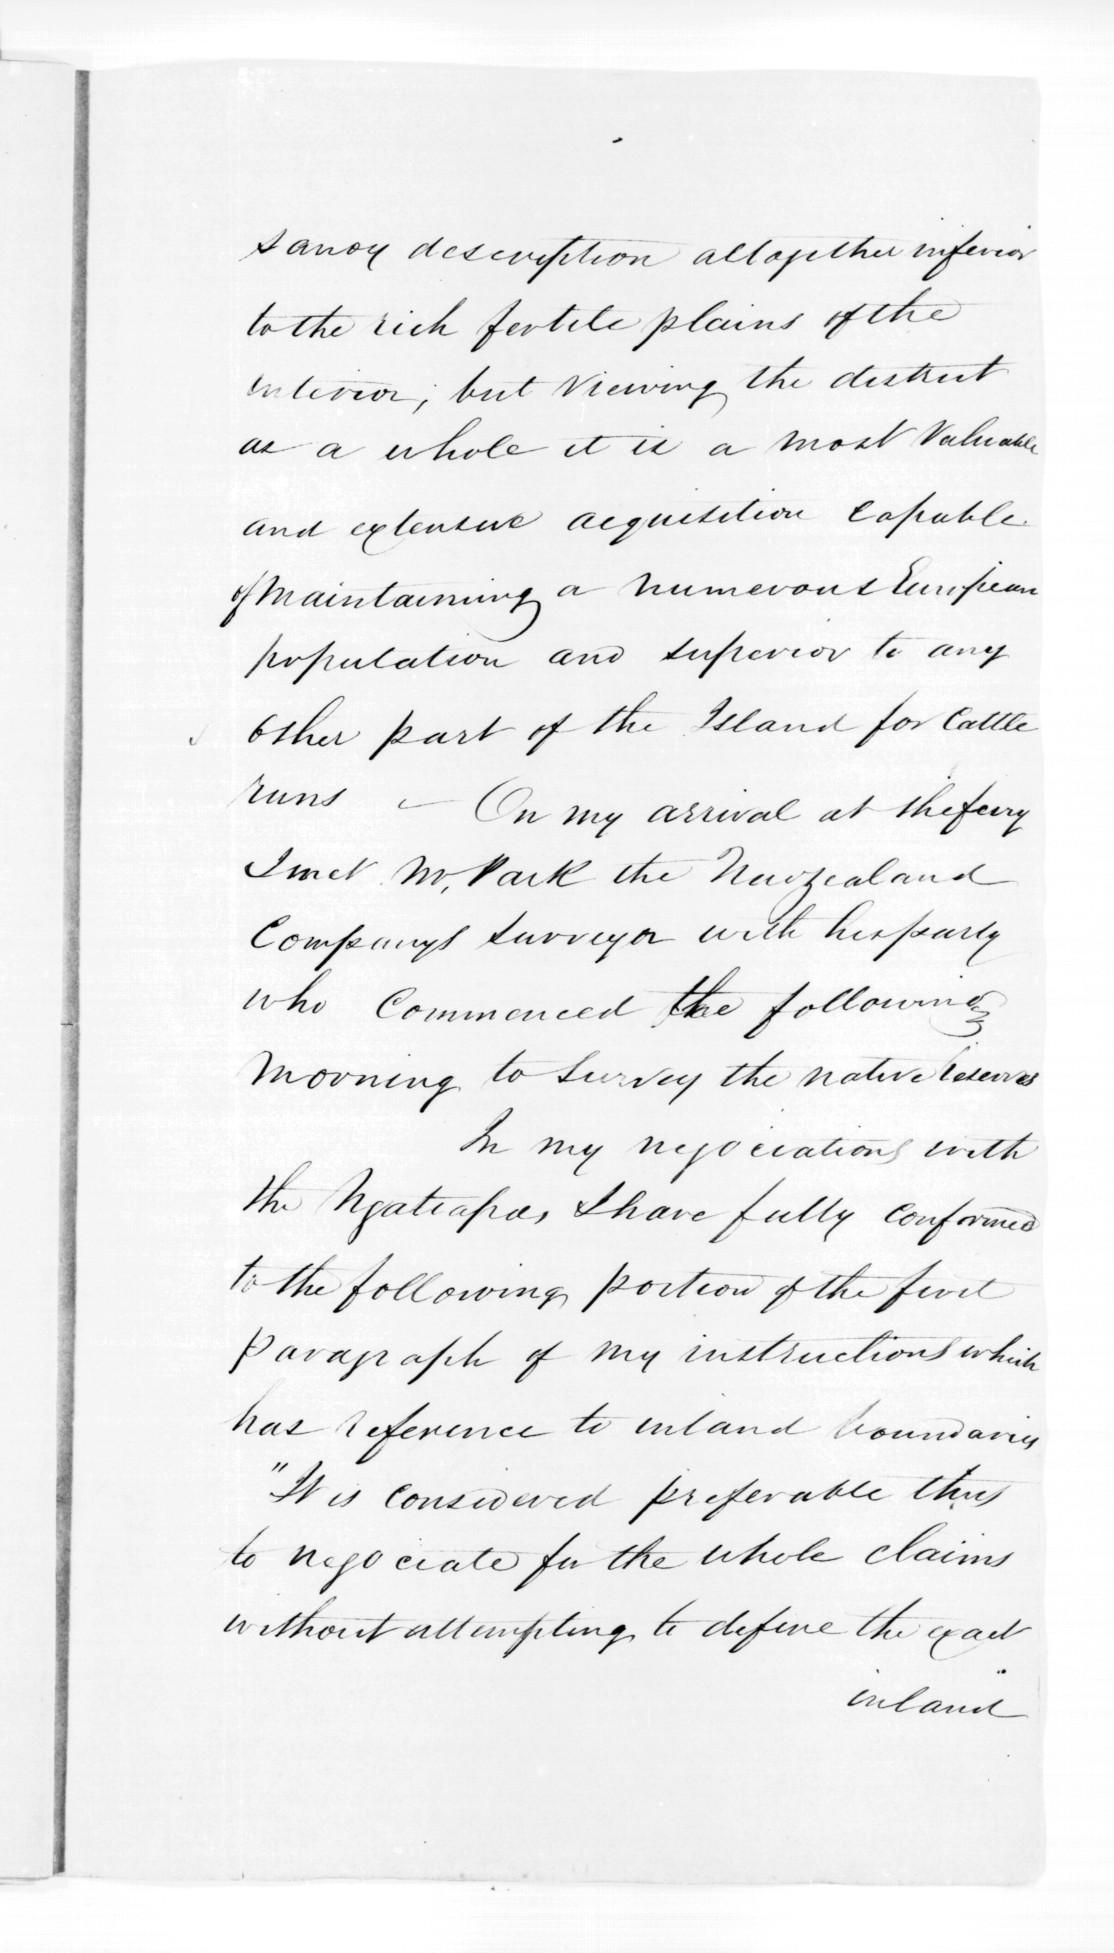 sandy description altogether inferior
to the rich fertile plains of the
interior; but Viewing the district
as a whole it is a most Valuable
and extensive acquisition Capable
of Maintaining a numerous European
population and superior to any
other part of the Island for Cattle
runs — On my arrival at the ferry
I met Mr, Park the New Zealand
Companys Surveyor with his party
who Commenced the following
Morning to Survey the native Reserves
In my negociations with
the Ngatiapa, I have fully conformed
to the following portion of the first
paragraph of my instructions which
has reference to inland boundaries
"It is considered preferable thus
to negociate for the whole claims
without attempting to define the exact
inland